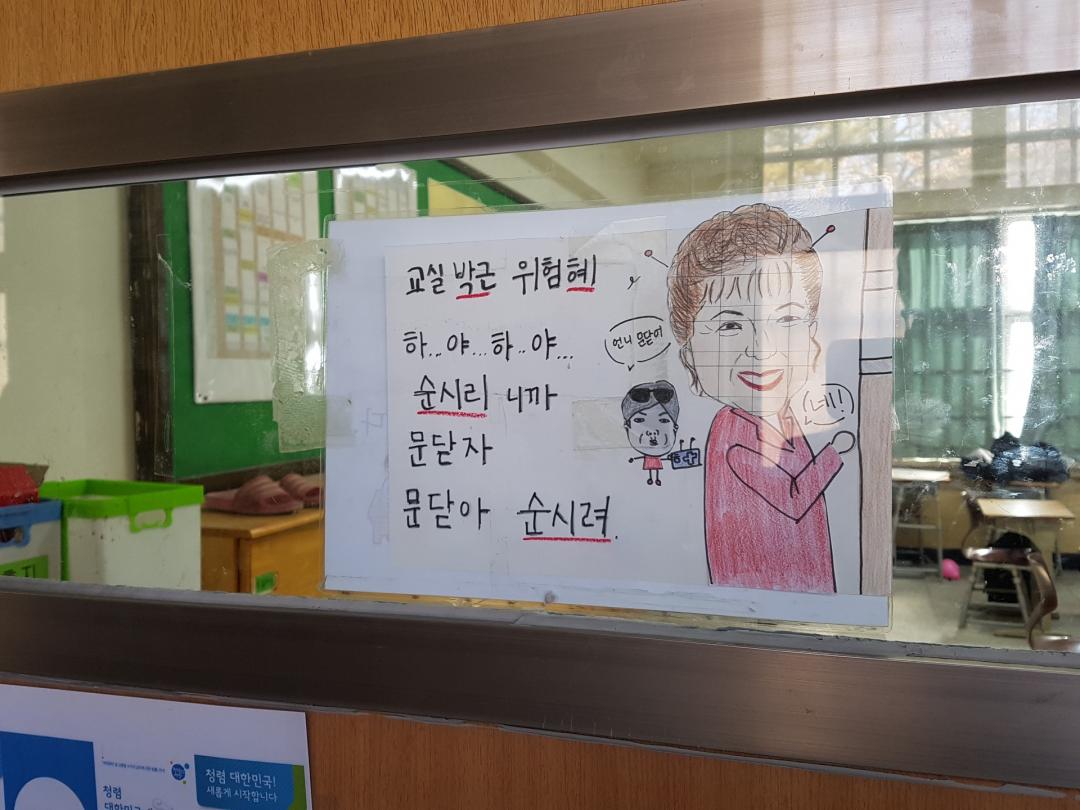 교실 박근 위험혜
하...야...하..야...
순시리 니까
문닫자
문닫아 순시려.
언니 문닫어
네!
청렴 대한민국!
새롭게 시작합니다
청렴
대한민국